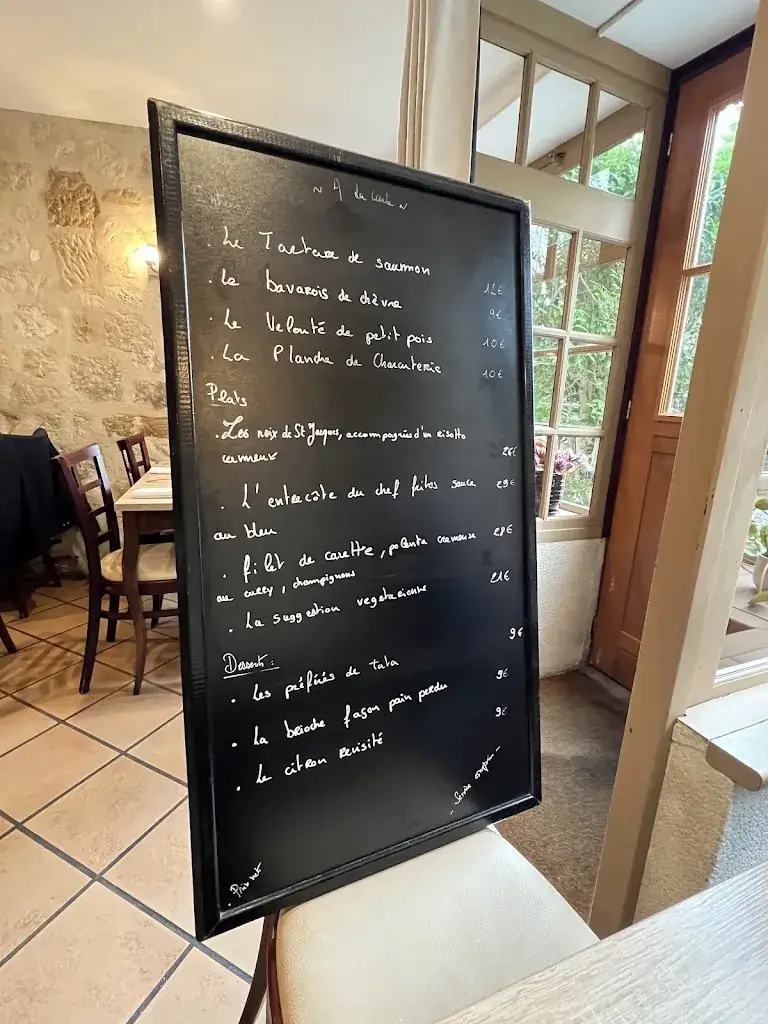 ~ A la carte ~
Entrées
. Le Tartare de saumon 12€
. Le bavarois de chèvre 9€
. Le Velouté de petit pois 10€
. La Planche de Charcuterie 10€
Plats
. Les noix de St Jacques, accompagnées d'un risotto
crémeux 26€
. L'entrecôte du chef frites sauce 29€
au bleu
. filet de carette, polenta crémeuse 28€
au curry, champignons
. La suggestion végétarienne 21€
Desserts :
. Les préférés de tata 9€
. La brioche façon pain perdu 9€
. Le citron revisité 9€
- Service compris -
. Prix net